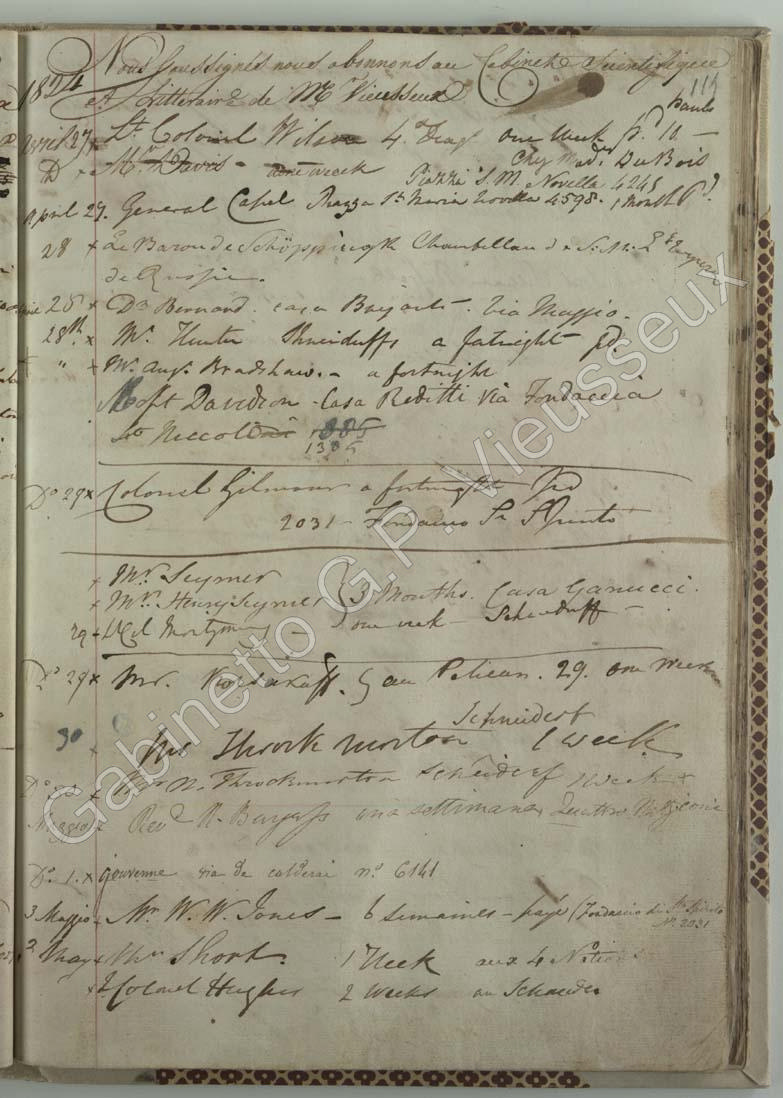 Nous Soussignés nous abonnons au Cabinet Scientifique
119
1824
et Litteraire de Mr Vieusseux
Avril 27 x Lt Colonel Wilson 4 one week pd 10 — pauls
Chez Made DuBois
D x Mr Davis - one week
Piazza S. M. Novella 4245
April 27. General Capel Piazza Sta Maria Novella 4598. 1 Month Pd
28 x Le Baron de Chambellan de S. M. L'Empr
de Russie.
28 x Dr Bernard. casa Via Maggio.
28th x Mr Hunter Shneiduffs a fortnight pd.
" x Mr Augs. Bradshaw. - a fortnight
Davidson - Casa Reditti Via Fondaccia
Sto Niccolo 1885
1385
Do 29 x Colonel Gilmour a fortnight Pd
2031 - Fondacio St Spirito
x Mr Seymer
x Mr Henry Seymer } 3 Months. Casa Ganucci.
29 x - one week -
Do 29 x Mr. Korsakoff. au Pelican. 29. one week
Schneiderf
30 x Mr Throckmorton 1 week
Do 30 x Mr N. Throckmorton Scheiderf 1 week x
Maggio Revd R. Burgess una settimana Quattro Nazioni
Do. 1. x gouvenne via de calderai no 6141
3 Maggio x Mr W. W. Jones - 6 Semaines - payé (Fondaccio di Sto Spirito
No. 2031
2 May x Short. 1 Week aux 4 Nations
x Lt Colonel Hughes 2 Weeks au
Gabinetto G.P. Vieusseux